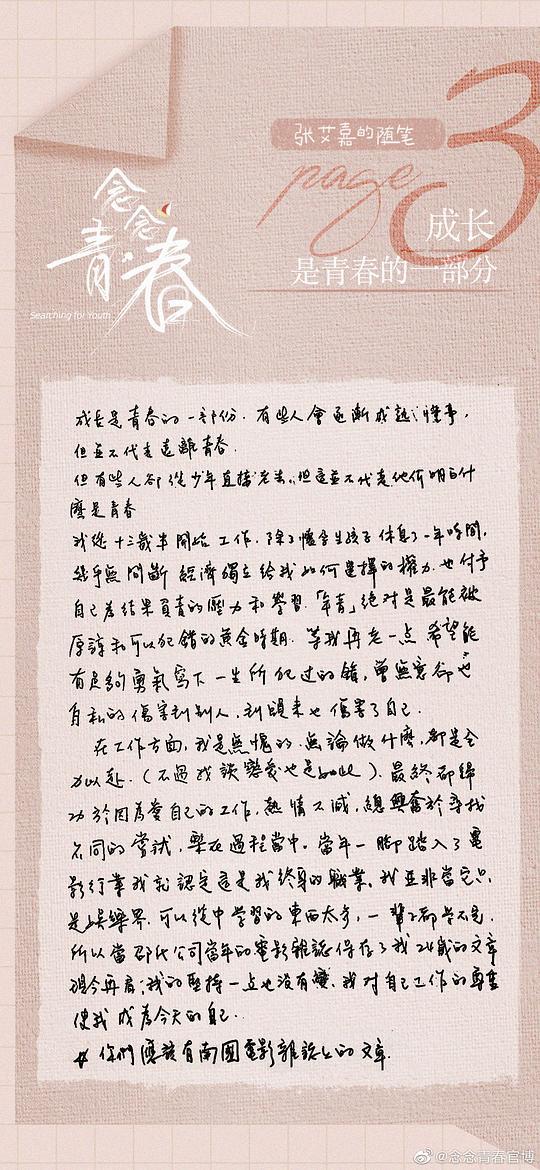 张艾嘉的随笔
page 3
成长
是青春的一部分
念念青春
Searching for Youth
成長是青春的一部份。有些人會逐漸成熟、懂事，
但並不代表遠離青春。
但有些人卻從少年直接老去，但這並不代表他們明白什
麼是青春
我從十三歲半開始工作，除了懷孕生孩子休息了一年時間，
幾乎無間斷 經濟獨立給我如何選擇的權力，也付予
自己為結果負責的壓力和學習。「年青」絕對是最能被
原諒和可以犯錯的黃金時期。等我再老一点 希望能
有足夠勇氣寫下一生所犯过的錯，曾無意卻也
自私的傷害到別人，到頭来也傷害了自己。
在工作方面，我是無愧的。無論做什麼，都是全
力以赴。（不過我談戀愛也是如此）。最終都歸
功於因為愛自己的工作，熱情不減，總興奮於尋找
不同的嘗試，樂在過程當中。當年一脚踏入了電
影行業我就認定這是我終身的職業。我並非當它只
是娛樂界，可以從中學習的東西太多，一輩子都学不完，
所以當邵氏公司當年的電影雜誌保存了我24歲的文章
現今再看，我的堅持一点也没有變。我对自己工作的尊重
使我成為今天的自己。
你們應該有南國電影雜誌上的文章
@念念青春官博